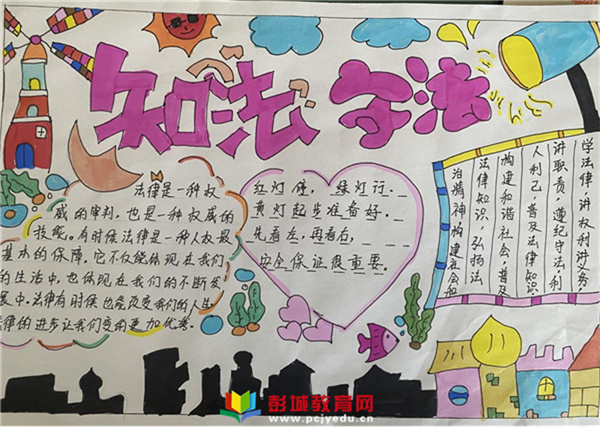 知法 守法
法律是一种权
威的审判,也是一种权威的
技能,有时候法律是一种人权最
基本的保障,它不仅能体现在我们
的生活中,也体现在我们的不断发
展中.法律有时候也能改变我们的人生
法律的进步让我们变的更加优秀.
红灯停,绿灯行.
黄灯起步准备好.
先看左,再看右,
安全保证很重要.
学法律,讲权利讲义务,
讲职责,遵纪守法,利
人利己,普及法律知识,
构建和谐社会,普及
法律知识,弘扬法
治精神构建社会和
彭城教育网
www.pcjyedu.cn